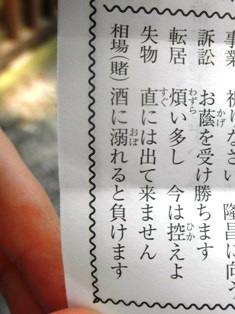 事業 祝はなさい 隆昌に向う
訴訟 お蔭を受け勝ちます
転居 煩い多し 今は控えよ
失物 直には出て来ません
相場(賭) 酒に溺れると負けます